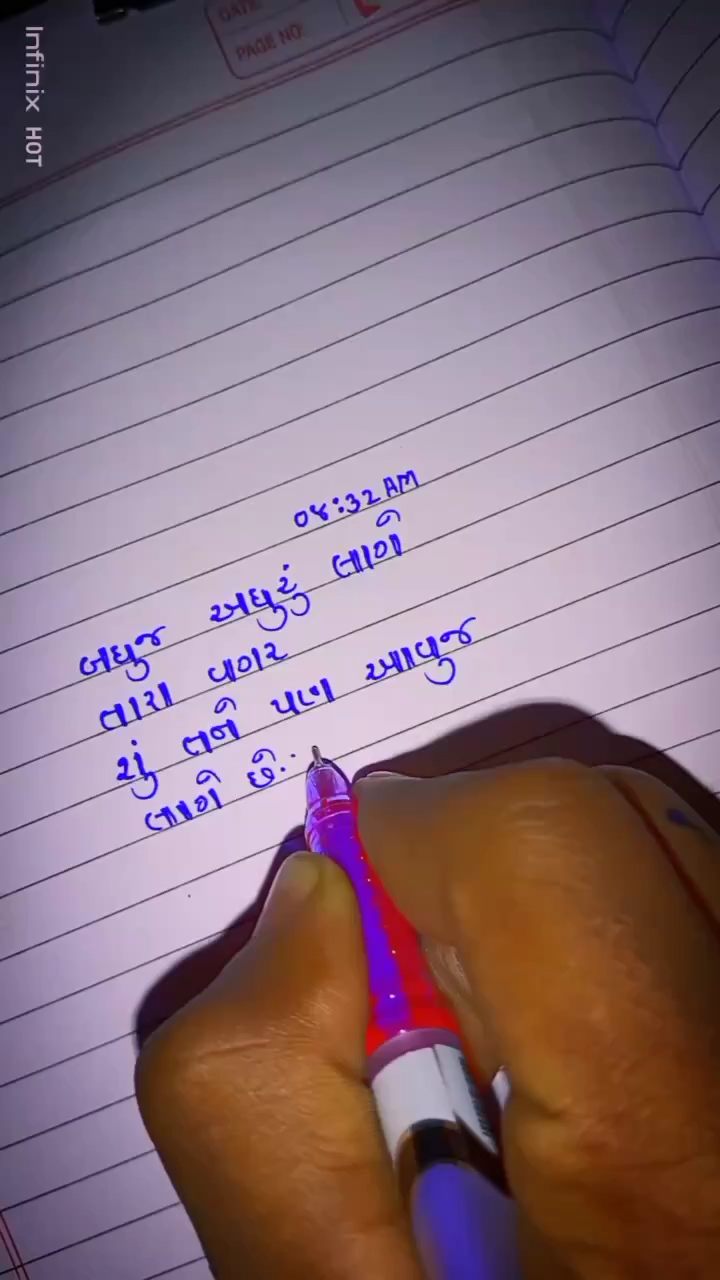 Infinix HOT
DATE:
PAGE NO:
૦૪:૩૨ AM
બધુજ અધુરું લાગે
તારા વગર
શું તને પણ આવુજ
લાગે છે..